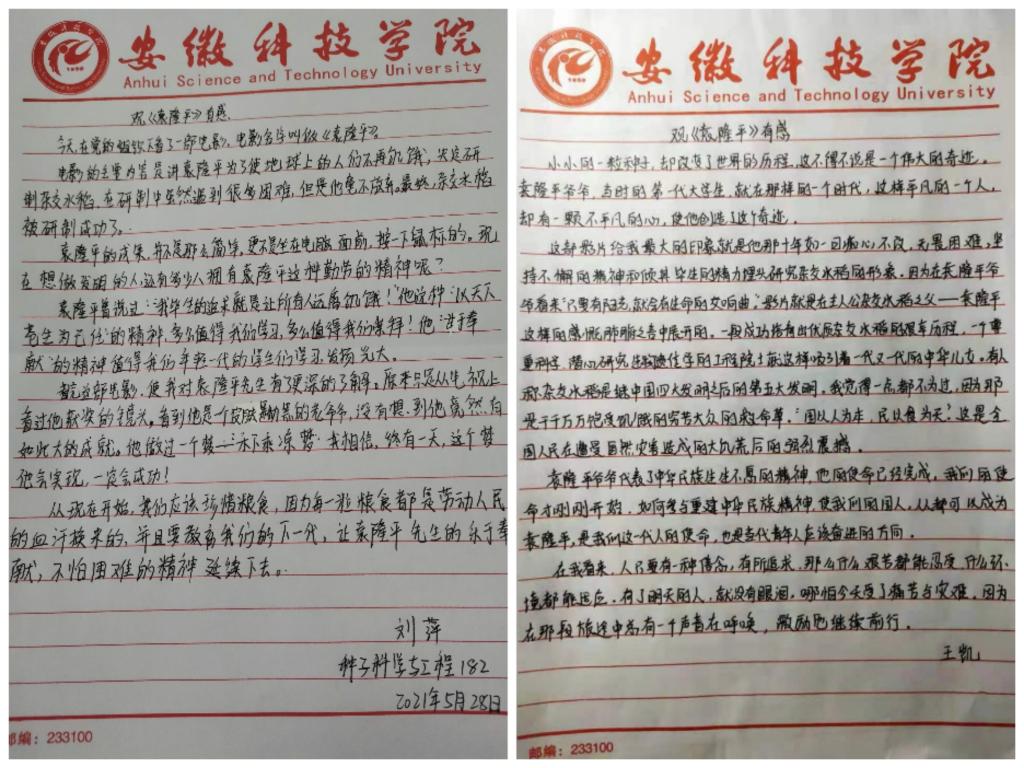 安徽科技学院
Anhui Science and Technology University
观《袁隆平》有感
今天在党的组织下看了一部电影,电影名字叫做《袁隆平》。
电影的主要内容是讲袁隆平为了使地球上的人们不再饥饿,决定研
制杂交水稻,在研制中虽然遇到很多困难,但是他毫不放弃。最终,杂交水稻
被研制成功了。
袁隆平的成果,并不是那么简单,更不是坐在电脑面前,按一下鼠标的。现
在想做发明的人,还有多少人拥有袁隆平这种勤劳的精神呢?
袁隆平曾说过:“我毕生的追求就是让所有人远离饥饿!”他这种“以天下
苍生为己任”的精神,多么值得我们学习,多么值得我们崇拜!他“甘于奉
献”的精神值得我们年轻一代的学生们学习,发扬光大。
看完这部电影,使我对袁隆平先生有了更深的了解。原本只是从电视上
看过他获奖的镜头,看到他是个皮肤黝黑的老爷爷,没有想到他竟然有
如此大的成就。他做过一个梦——“禾下乘凉梦”我相信,终有一天,这个梦
他会实现,一定会成功!
从现在开始,我们应该珍惜粮食,因为每一粒粮食都是劳动人民
的血汗换来的,并且要教育我们的下一代,让袁隆平先生的乐于奉
献,不怕困难的精神延续下去。
刘萍
种子科学与工程182
2021年5月28日
邮编:233100
安徽科技学院
Anhui Science and Technology University
观《袁隆平》有感
小小的一粒种子,却改变了世界的历程,这不得不说是一个伟大的奇迹。
袁隆平爷爷,当时的第一代大学生,就在那样的一个时代,这样平凡的一个人,
却有一颗不平凡的心,使他创造了这个奇迹。
这部影片给我最大的印象就是他那十年如一日痴心不改,无畏困难,坚
持不懈的精神和倾其毕生的精力埋头研究杂交水稻的形象。因为在袁隆平爷
爷看来“只要有阳光,就会有生命的交响曲”。影片就是在主人公杂交水稻之父——袁隆平
这样的感慨肺腑之言中展开的。一段成功培育出优质杂交水稻的艰辛历程,一个尊
重科学,潜心研究生物遗传学的工程院士就这样吸引着一代又一代的中华儿女。有人
称杂交水稻是继中国四大发明之后的第五大发明,我觉得一点都不为过,因为那
是千千万万饱受饥饿的穷苦大众的救命草。“国以人为本,民以食为天”这是全
国人民在遭受自然灾害造成的大饥荒后的强烈震撼。
袁隆平爷爷代表了中华民族生生不息的精神,他的使命已经完成,我们的使
命才刚刚开始,如何参与重建中华民族精神,使我们的国人,人人都可以成为
袁隆平,是我们这一代人的使命,也是当代青年人应该奋进的方向。
在我看来,人只要有一种信念,有所追求,那么什么艰苦都能忍受,什么环
境都能适应。有了明天的人,就没有眼泪,哪怕今天受了痛苦与灾难,因为
在那段旅途中总有一个声音在呼唤,激励他继续前行。
王凯
邮编:233100